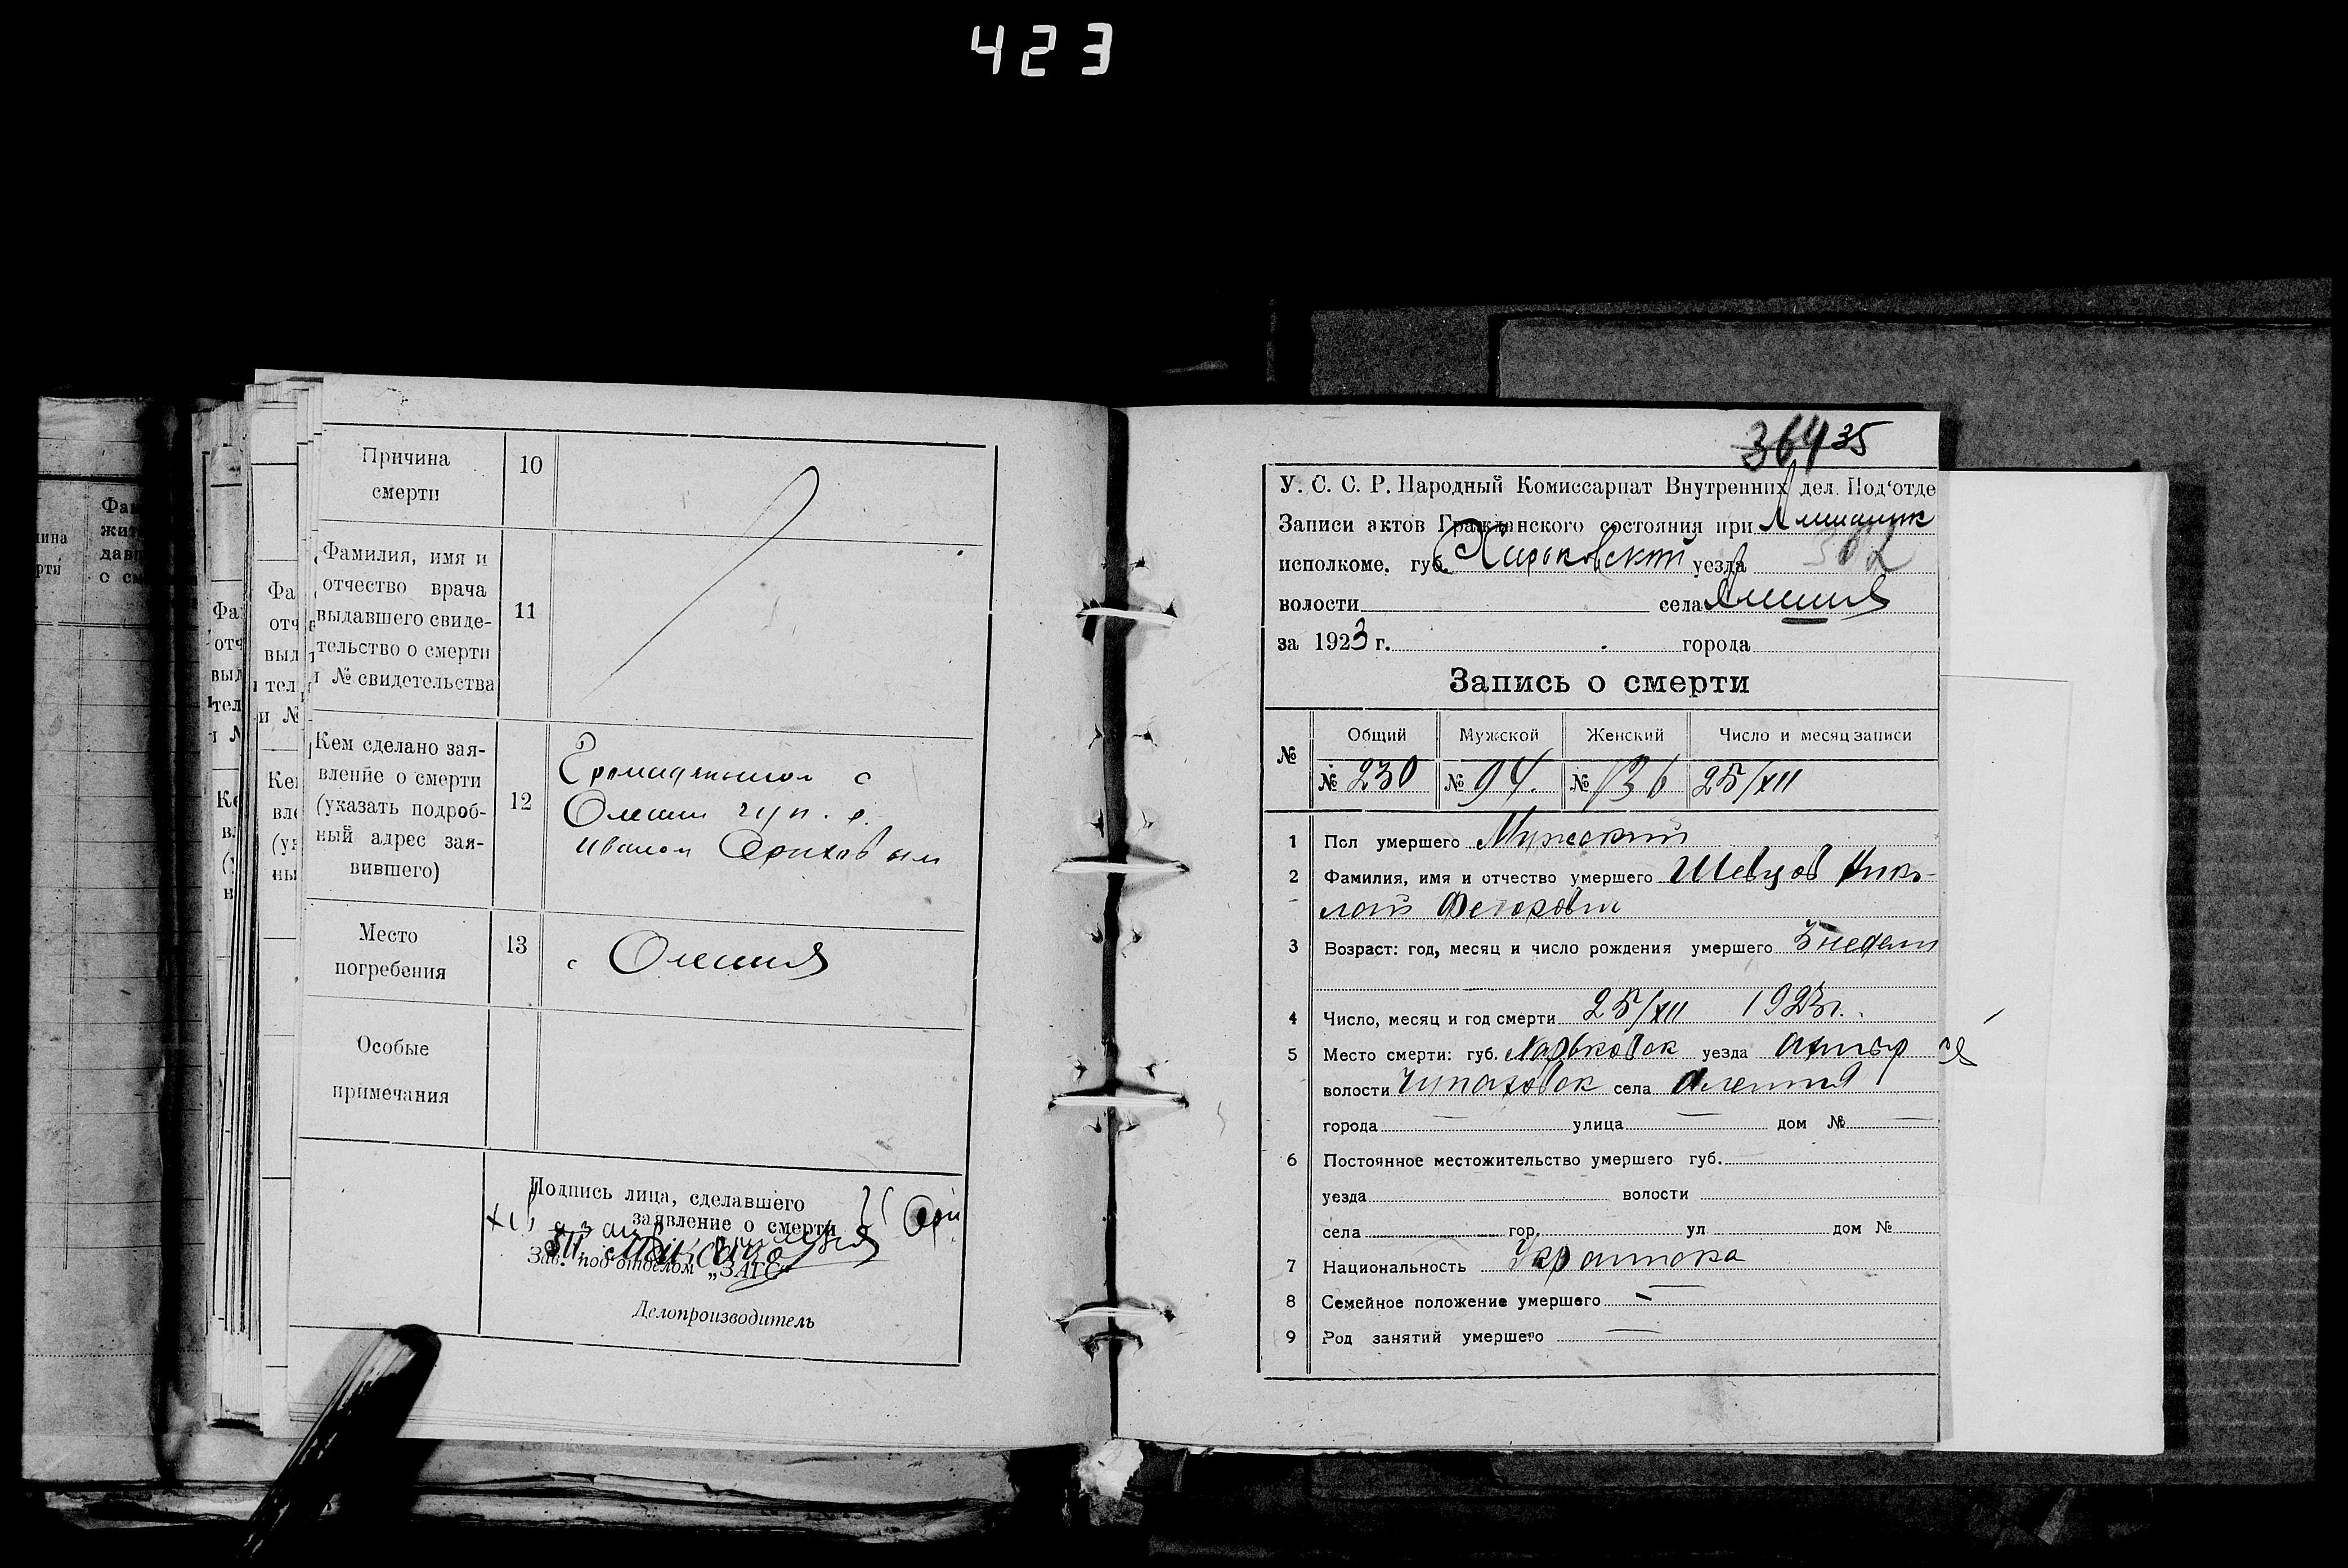 423
Причина
смерти
10
Фамилия, имя и
отчество врача
выдавшего свиде-
тельство о смерти
№ свидетельства
11
Кем сделано зая-
вление о смерти
(указать подроб-
ный адрес зая-
вившего)
12
с
Олешни чуп. в.
Иваном
Место
погребения
13
с Олешня
Особые
примечания
Подпись лица, сделавшего
заявление о смерти
Зав. под'отделом „ЗАГС"
Делопроизводитель
364 35
У. С. С. Р. Народный Комиссариат Внутренних дел. Под'отде
Записи актов Гражданского состояния при
исполкоме. губ. Харьковской уезда
волости села
за 1923 г. города
Запись о смерти
№ Общий Мужской Женский Число и месяц записи
№ 230 № 94. № 136 25/XII
1 Пол умершего Мужеский
2 Фамилия, имя и отчество умершего Шевцов Нико-
лай Федорович
3 Возраст: год, месяц и число рождения умершего 3 недели
4 Число, месяц и год смерти 25/XII 1923г.
5 Место смерти: губ. Харьковск уезда Ахтыр
волости Чупаховск села Олешня
города — улица — дом № —
6 Постоянное местожительство умершего губ.
уезда волости
села гор. ул дом №
7 Национальность
8 Семейное положение умершего —
9 Род занятий умершего —